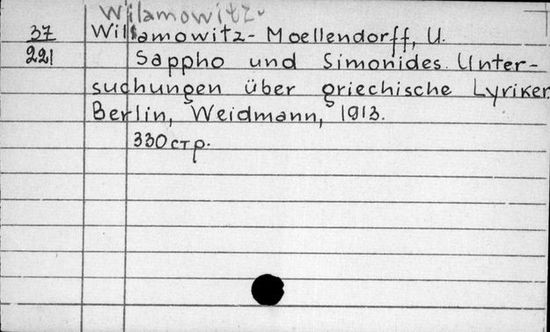 Wilamowitz-
37 Willamowitz- Moellendorff, U.
221 Sappho und Simonides. Unter-
suchungen über griechische Lyriker
Berlin, Weidmann, 1913.
330 стр.